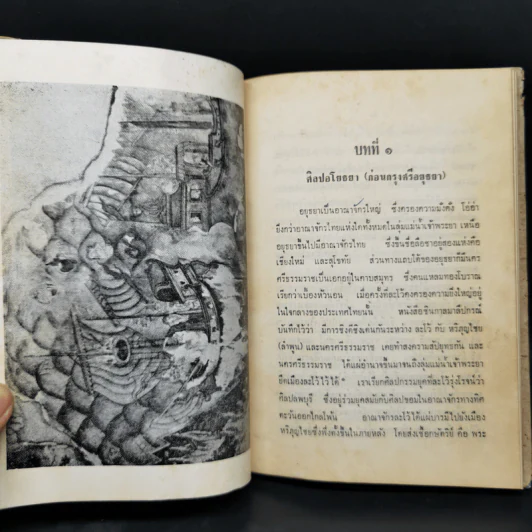 บทที่ ๑
ศิลปอโยธยา (ก่อนกรุงศรีอยุธยา)
อยุธยาเป็นอาณาจักรใหญ่ ซึ่งครองความมั่งคั่ง โอ่อ่า
ยิ่งกว่าอาณาจักรไทยแห่งใดทั้งหมดในลุ่มแม่น้ำเจ้าพระยา เหนือ
อยุธยาขึ้นไปมีอาณาจักรไทย ซึ่งขึ้นชื่อลือชาอยู่สองแห่งคือ
เชียงใหม่ และสุโขทัย ส่วนทางแถบใต้ของอยุธยาก็มีนคร
ศรีธรรมราชเป็นเอกอยู่ในคาบสมุทร ซึ่งคนแหลมทองโบราณ
เรียกว่าเบื้องหัวนอน เมื่อครั้งที่ละโว้คงครองความยิ่งใหญ่อยู่
ในใจกลางของประเทศไทยนั้น หนังสือชินกาลมาลีปกรณ์
บันทึกไว้ว่า มีการชิงดีชิงเด่นกันระหว่าง ละโว้ กับ หริภุญไชย
(ลำพูน) และนครศรีธรรมราช เคยทำสงครามสัปยุทธกัน และ
นครศรีธรรมราช ได้แผ่อำนาจขึ้นมาจนถึงลุ่มแม่น้ำเจ้าพระยา
ยึดเมืองละโว้ไว้ได้ เราเรียกศิลปกรรมยุคที่ละโว้รุ่งโรจน์ว่า
ศิลปลพบุรี ซึ่งอยู่ร่วมยุคสมัยกับศิลปขอมในอาณาจักรทางทิศ
ตะวันออกไกลโพ้น อาณาจักรละโว้ได้แผ่บารมีไปยังเมือง
หริภุญไชยซึ่งตั้งขึ้นในภายหลัง โดยส่งเชื้อกษัตริย์ คือ พระ